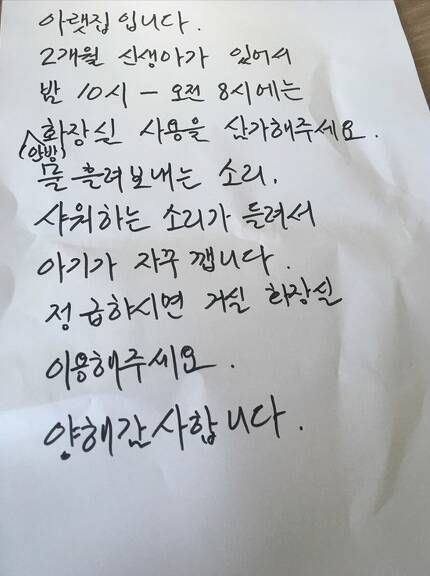 아랫집입니다.
2개월 신생아가 있어서
밤 10시 - 오전 8시에는
(안방) 화장실 사용을 삼가해주세요.
물 흘려보내는 소리,
샤워하는 소리가 들려서
아기가 자꾸 깹니다.
정 급하시면 거실 화장실
이용해주세요.
양해감사합니다.